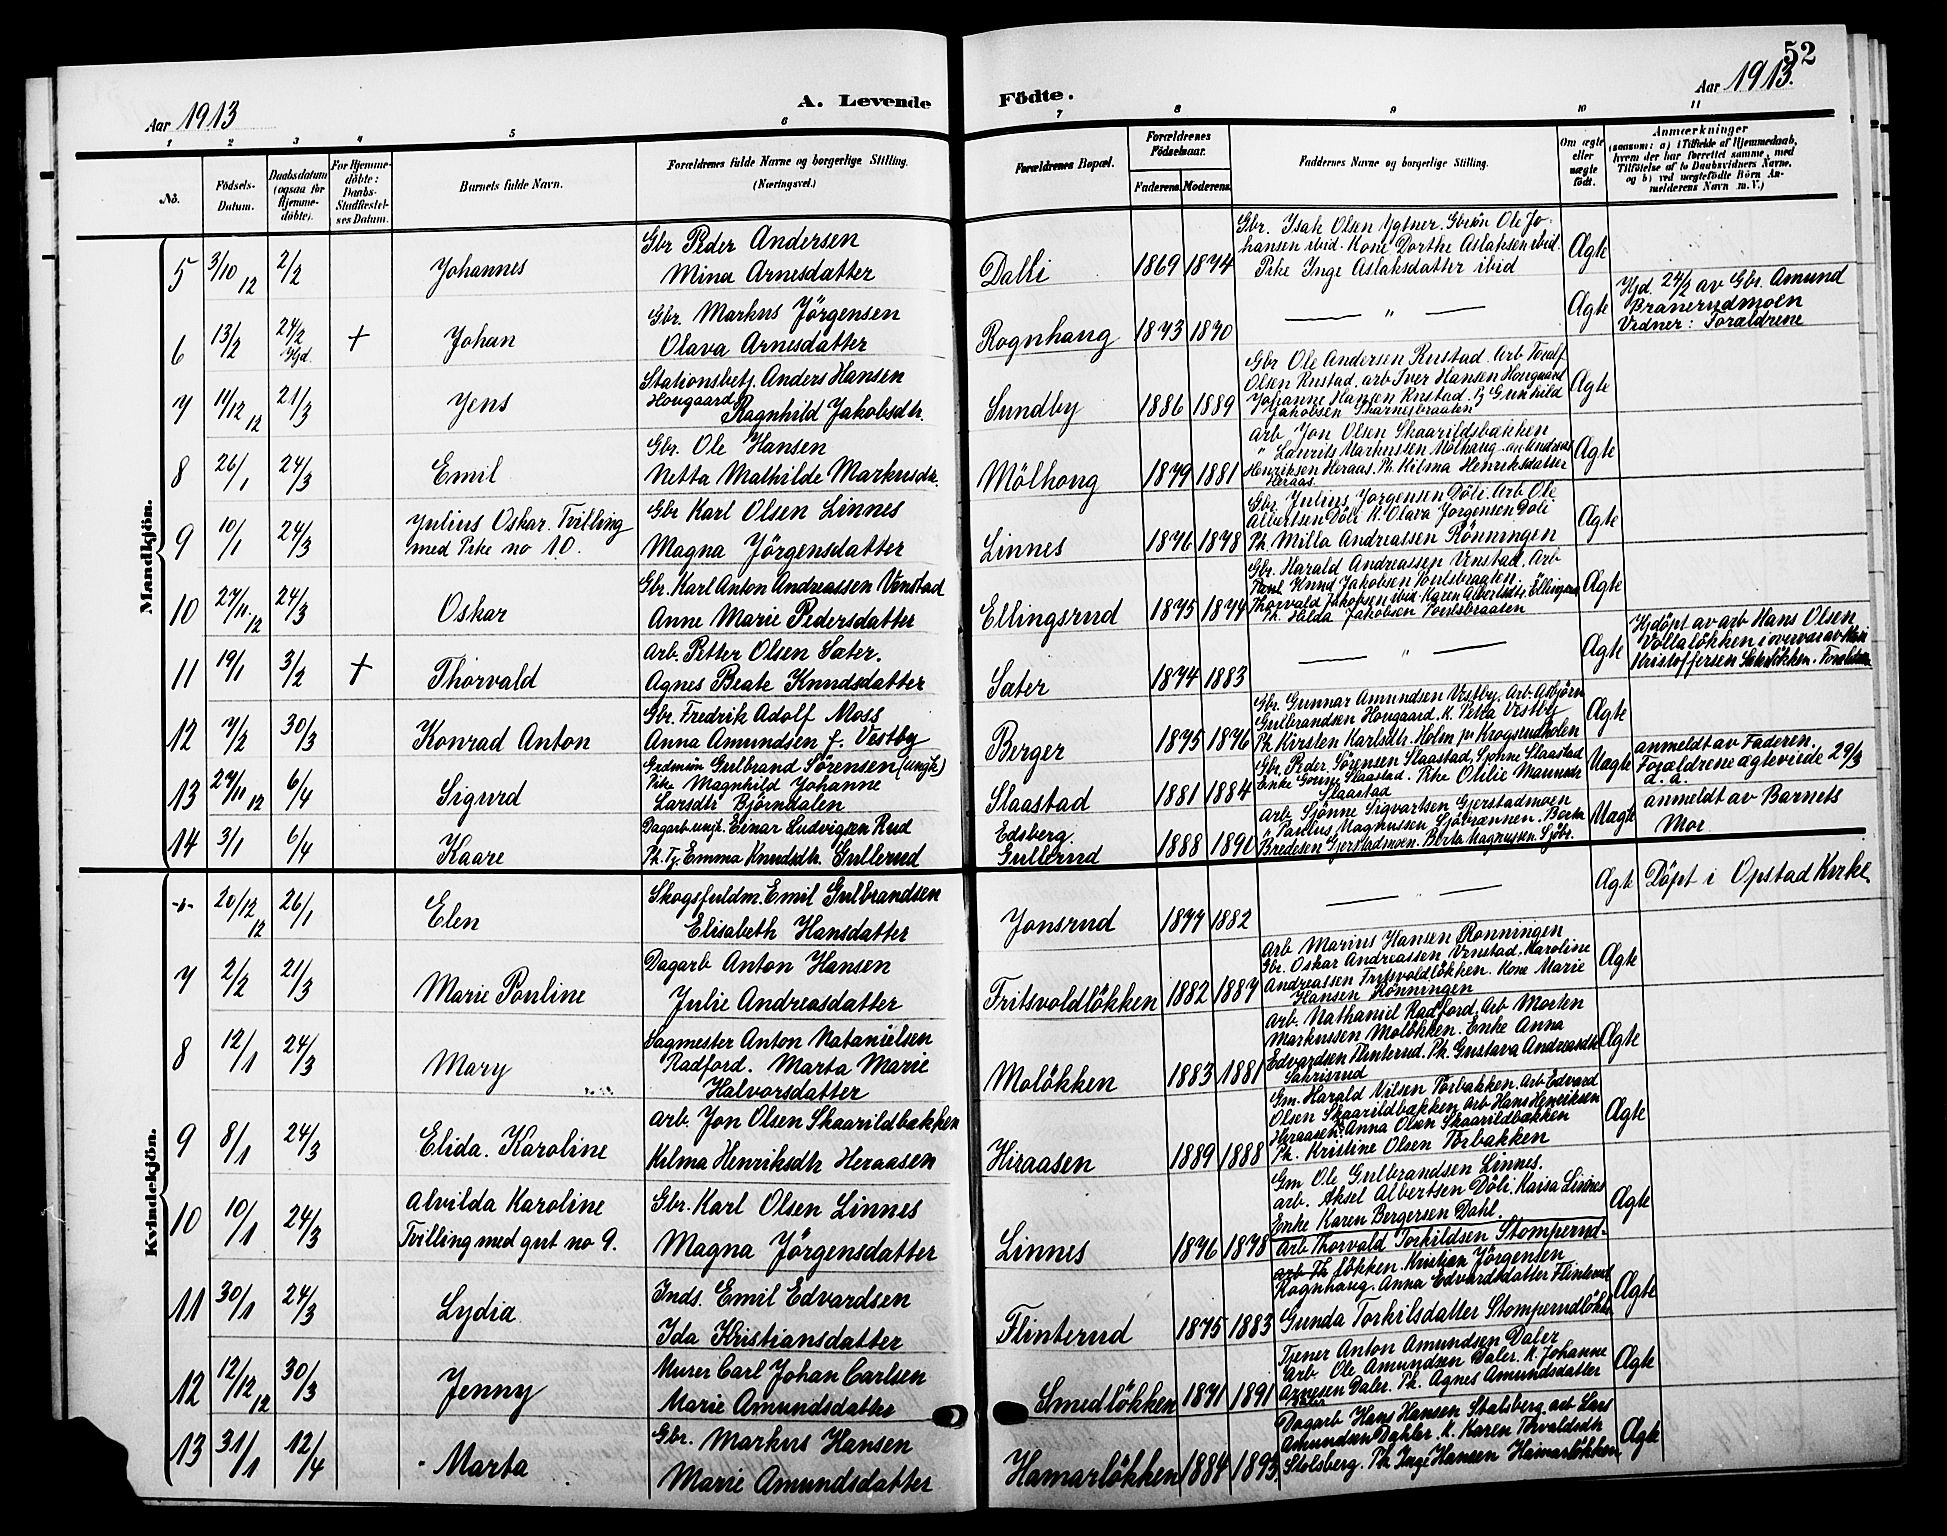 52
Aar 1913
A. Levende Födte.
Aar 1913.
1 2 3 4 5 6 7 8 9 10 11
No.
Födsels-Datum.
Daabsdatum (ogsaa for Hjemme-döbte).
For Hjemme-döbte: Daabs-Stadfæstel-ses Datum.
Barnets fulde Navn.
Forældrenes fulde Navne og borgerlige Stilling.
(Næringsvei.)
Forældrenes Bopæl.
Forældrenes Födselsaar.
Faderens. Moderens.
Faddernes Navne og borgerlige Stilling.
Om ægte eller uægte födt.
Anmærkninger
(saasom: a) i Tilfælde af Hjemmedaab, hvem der har forrettet samme, med Tilföielse af to Daabsvidners Navne, og b) ved uægtefödte Börn An-melderens Navn m. V.)
Mandkjön.
5 3/10 12 2/2 Johannes
Gbr Peder Andersen
Mina Arnesdatter
Dalli 1869 1874
Gbr. Isak Olsen Ygtner. Gbrsön Ole Jo-
hansen ibid. Kone Dorthe Aslaksen ibid.
Pike Inge Aslaksdatter ibid
Ægte
6 13/2 24/2 Hjd. + Johan
Gbr. Markus Jörgensen
Olava Arnesdatter
Rognhaug 1873 1870
— " —
Ægte
Hjd. 24/2 av Gbr. Amund
Branerudmoen
Vidner: Forældrene
7 14/12 12 21/3 Jens
Stationsbetj. Anders Hansen
Hougaard Ragnhild Jakobsdtr.
Sundby 1886 1889
Gbr Ole Andersen Rustad. Arb Toralf
Olsen Rustad, arb Iver Hansen Hougaard
Johanne Hansen Rustad. Pg Gunhild
Jakobsen Skarnesbraaten
Ægte
8 26/1 24/3 Emil
Gbr. Ole Hansen
Netta Mathilde Markusdtr.
Mölhoug 1879 1881
Arb Jon Olsen Skaarildsbækken
" Laurits Markussen Mölhaug. arb Andreas
Henriksen Heraas. Ph. Hilma Henriksdatter
Heraas.
Ægte
9 10/1 24/3 Julius Oskar. Tvilling
med Pike no 10.
Gbr Karl Olsen Linnes
Magna Jörgensdatter
Linnes 1876 1878
Gbr. Julius Jorgensen Döli. Arb Ole
Albertsen Döli K. Olava Jorgensen Döli
Ph. Milla Andreassen Rönningen
Ægte
10 27/11 12 24/3 Oskar
Gbr. Karl Anton Andreassen Unstad
Anne Marie Pedersdatter
Ellingsrud 1875 1874
Gbr. Harald Andreassen Unstad. Arb
Knud Jakobsen Poulsbraaten.
Thorvald Jakobsen ibid. Karen Albertsdtr Ellingsrud
Ph. Halda Jakobsen Poulsbraaten
Ægte
11 19/1 3/2 + Thorvald
Arb. Petter Olsen Sæter.
Agnes Beate Knudsdatter
Sæter 1874 1883
— " —
Ægte
Hjdöpt av arb Hans Olsen
Vollalökken i overvær av
Kristoffersen Sæterlökken. Forældrene
12 7/2 30/3 Konrad Anton
Gbr. Fredrik Adolf Moss
Anna Amundsen f. Vestby
Berger 1875 1876
Gbr. Gunnar Amundsen Vestby. Arb. Asbjörn
Gulbrandsen Hougaard. K. Petra Vestby
Ph. Kirsten Karlsdtr. Holm p Krogsrudholen
Ægte
13 27/11 12 6/4 Sigurd
Grdmön Gulbrand Sörensen (ungk)
Pike Magnhild Johanne
Larsdtr Björndalen
Slaastad 1881 1884
Gbr. Peder Sörensen Slaastad, Sjönne Slaastad
Enke Gorine Slaastad. Pike Otilie
Slaastad
Uægte
anmeldt av Faderen.
Forældrene egteviede 29/3
d. a.
14 3/1 6/4 Kaare
Dagarb. ungk. Einar Ludvigsen Rud
Ph. Tj. Emma Knudsdtr. Gullerud
Edsberg.
Gullerud 1888 1890
Arb Sjönne Sigvartsen Gjerstadmoen
" Paulus Magnussen Sjöbrænnen. Berta
Bredesen Gjerstadmoen. Berta Magnussen Sjöbr.
Uægte
anmeldt av Barnets
Mor
Kvindekjön.
20/12 12 26/1 Elen
Skogsfuldm. Emil Gulbrandsen
Elisabeth Hansdatter
Jonsrud 1877 1882
— " —
Ægte
Döpt i Opstad Kirke
7 2/2 21/3 Marie Pouline
Dagarb Anton Hansen
Julie Andreasdatter
Fritsvoldlökken 1882 1887
Arb Marius Hansen Ronningen
Gbr. Oskar Andreassen Unstad. Karoline
Andreassen Fritsvoldlökken. Kone Marie
Hansen Rönningen
Ægte
8 12/1 24/3 Mary
Sagmester Anton Natanielsen
Radford. Marta Marie
Halvorsdatter
Molökken 1883 1881
Arb. Nathaniel Radford, Arb Morten
Markussen Molökken. Enke Anna
Edvardsen Flinterud. Ph. Gustava Andreasdtr
Sakrisrud
Ægte
9 8/1 24/3 Elida. Karoline
Arb. Jon Olsen Skaarildbækken
Hilma Henriksdtr Heraasen
Hiraasen 1889 1888
Gm. Harald Nilsen Torbakken. Arb Edvard
Olsen Skaarildbækken, arb Hans Henriksen
Heraasen. Anna Olsen Skaarildbækken
Ph. Kristine Olsen Torbakken
Ægte
10 10/1 24/3 Alvilda Karoline
Tvilling med gut no 9.
Gbr. Karl Olsen Linnes
Magna Jörgensdatter
Linnes 1876 1878
Gm Ole Gulbrandsen Linnes.
Arb. Aksel Albertsen Döli. Kaisa Linnes
Enke Karen Bergersen Dahl.
Ægte
11 30/1 24/3 Lydia
Inds. Emil Edvardsen
Ida Kristiansdatter
Flinterud 1875 1883
Arb Thorvald Torkildsen Stomperud-
arb Th lökken. Kristian Jörgensen
Rognhaug. Anna Edvardsdatter Flinterud
Gunda Torkilsdatter Stomperudlökken
Ægte
12 12/12 12 30/3 Jenny
Murer Carl Johan Carlsen
Marie Amundsdatter
Smedlökken 1871 1891
Tjener Anton Amundsen Daler
Arb Ole Amundsen Daler. K. Johanne
Arnesen Daler. Ph. Agnes Amundsdatter
Daler
Ægte
13 31/1 12/4 Marta
Gbr. Markus Hansen
Marie Amundsdatter
Hamarlökken 1884 1893
Dagarb Hans Hansen Stalsberg. arb Lars
Amundsen Dahler. K. Karen Thvaldsdtr
Stolsberg. Ph. Inge Hansen Hamarlökken
Ægte